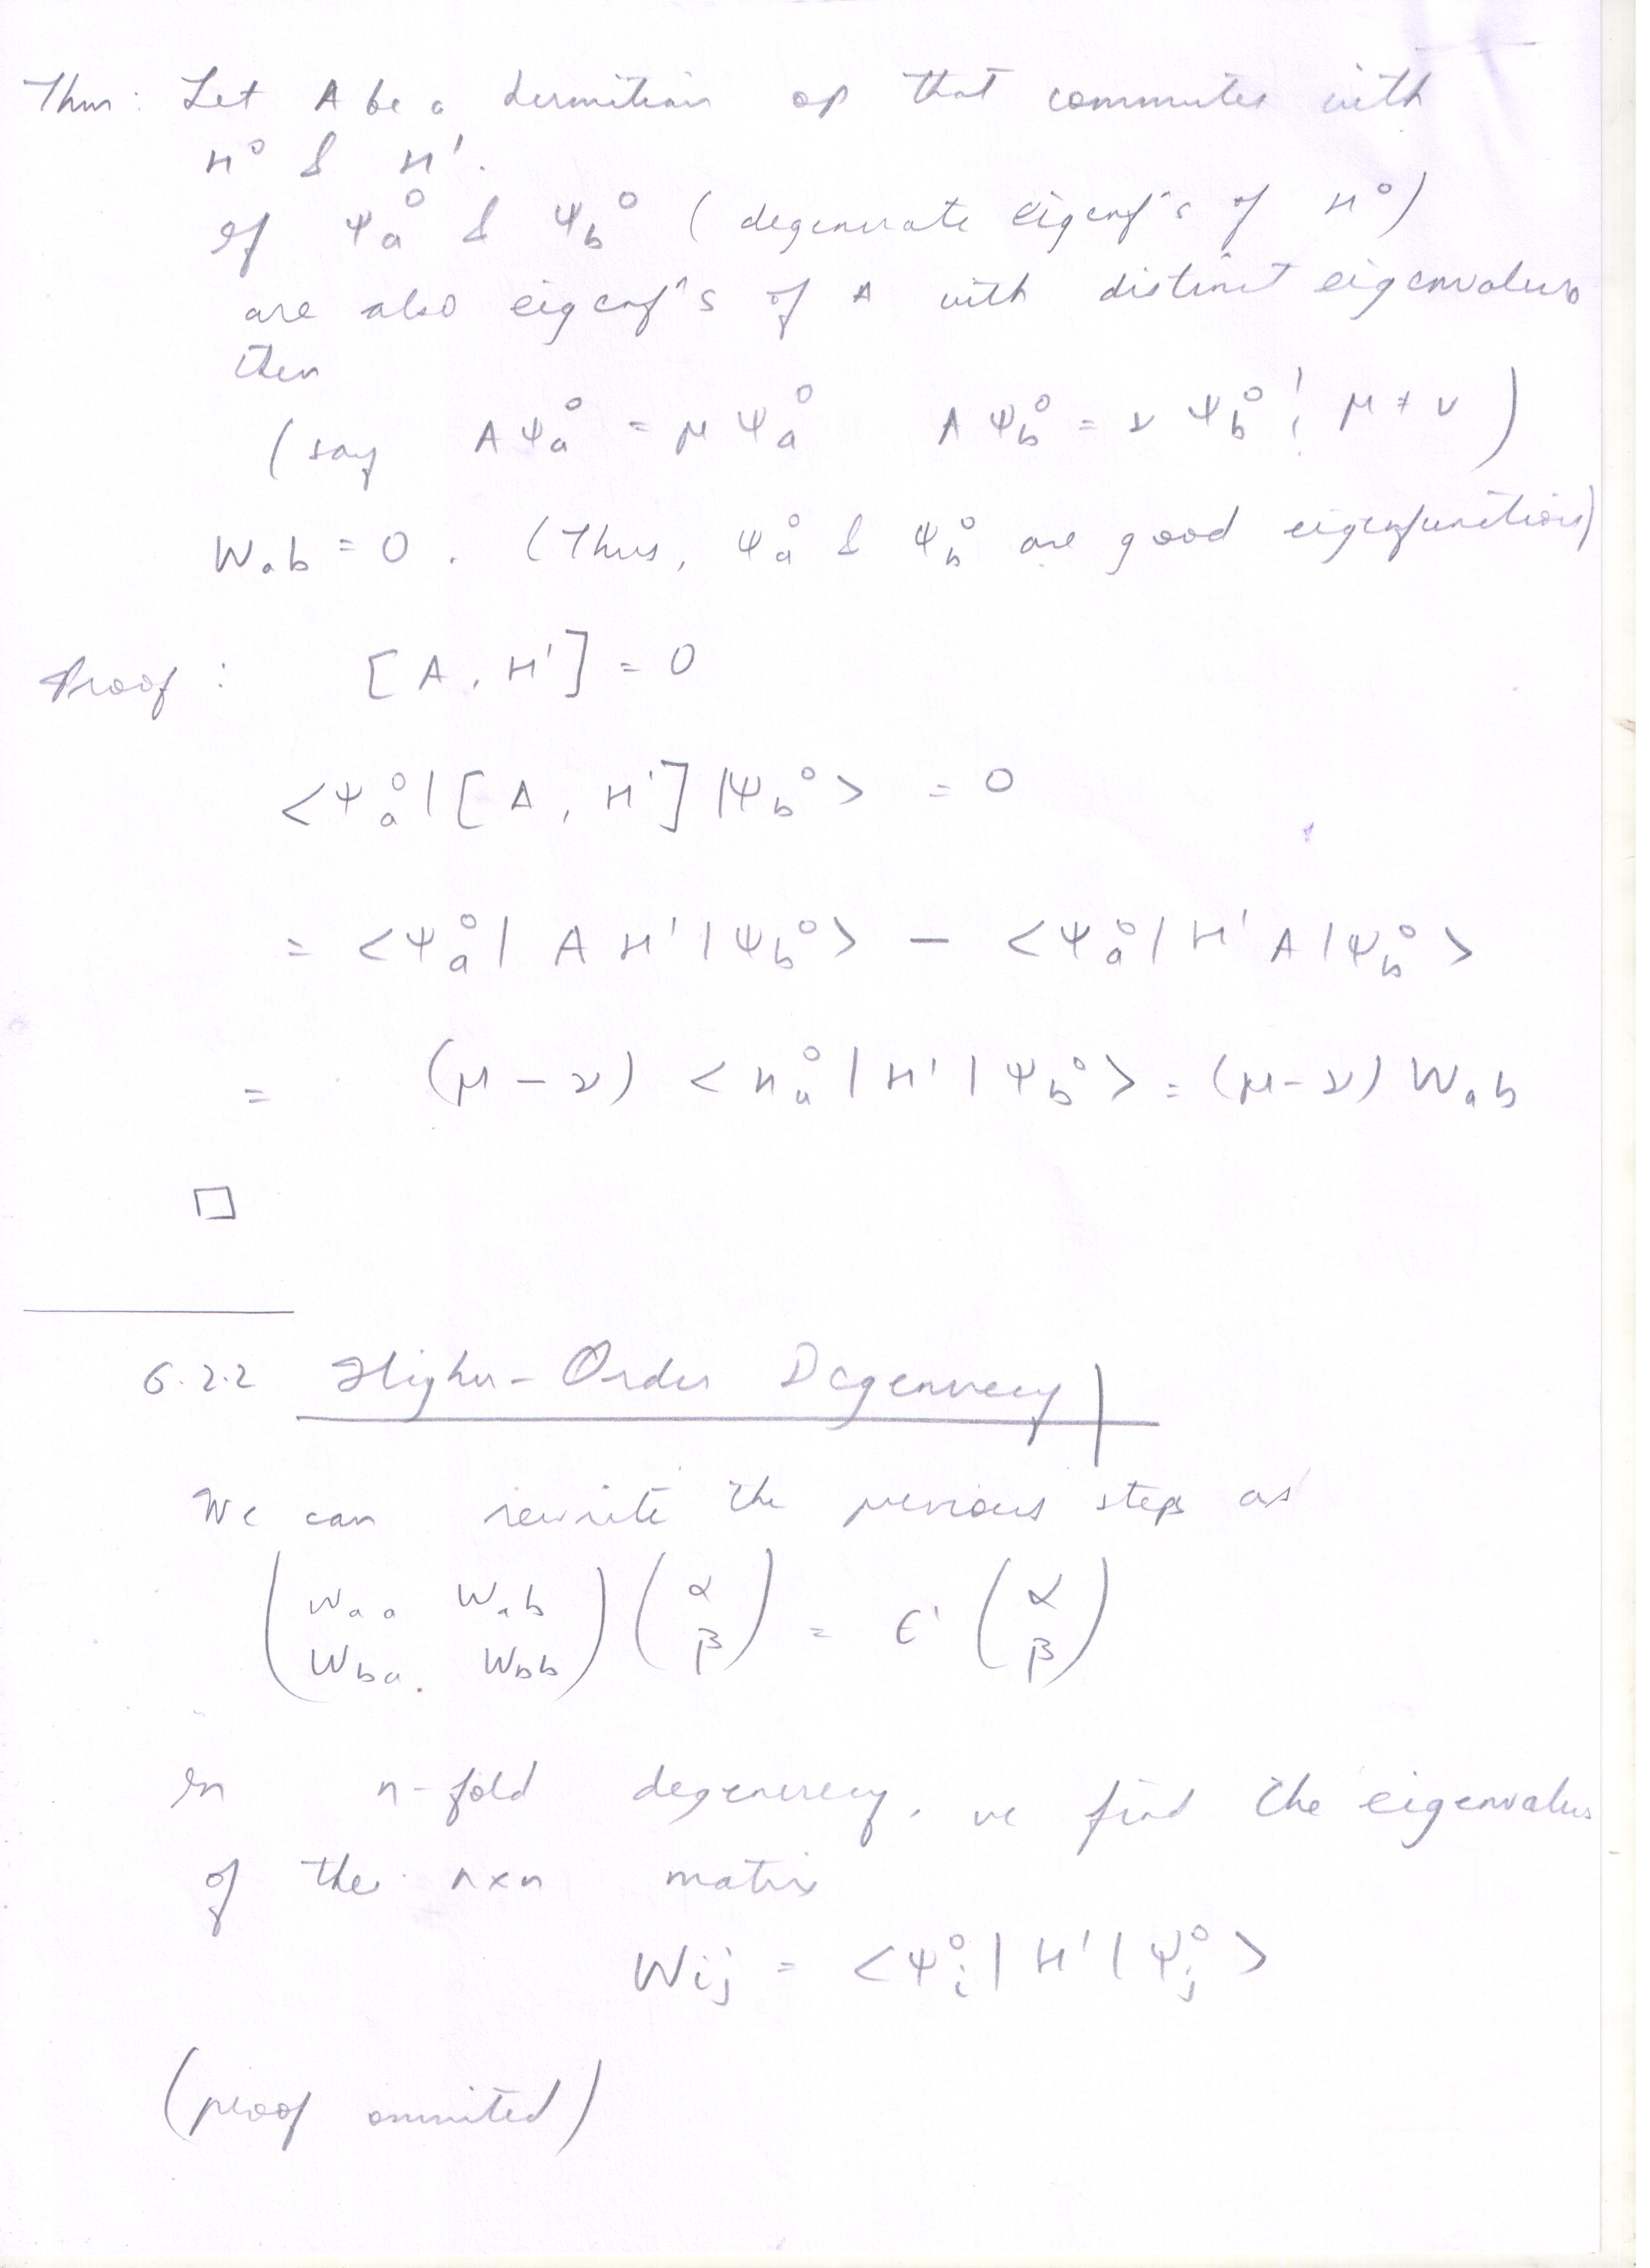 Thm: Let A be a Hermitian op that commutes with
H⁰ & H'.
If Ψa⁰ & Ψb⁰ (degenerate eigenf's of H⁰)
are also eigenf's of A with distinct eigenvalues
then
(say AΨa⁰ = μΨa⁰ AΨb⁰ = νΨb⁰ ; μ ≠ ν)
Wab = 0. (Thus, Ψa⁰ & Ψb⁰ are good eigenfunctions)
Proof: [A, H'] = 0
<Ψa⁰|[A, H']|Ψb⁰> = 0
= <Ψa⁰| A H'|Ψb⁰> - <Ψa⁰|H' A|Ψb⁰>
= (μ - ν) <Ha⁰|H'|Ψb⁰> = (μ - ν) Wab
□
6.2.2 Higher-Order Degeneracy
We can rewrite the previous steps as
(Waa Wab) (α) = E' (α)
(Wba Wbb) (β) (β)
In n-fold degeneracy, we find the eigenvalues
of the n×n matrix
Wij = <Ψi⁰|H'|Ψj⁰>
(proof ommited)